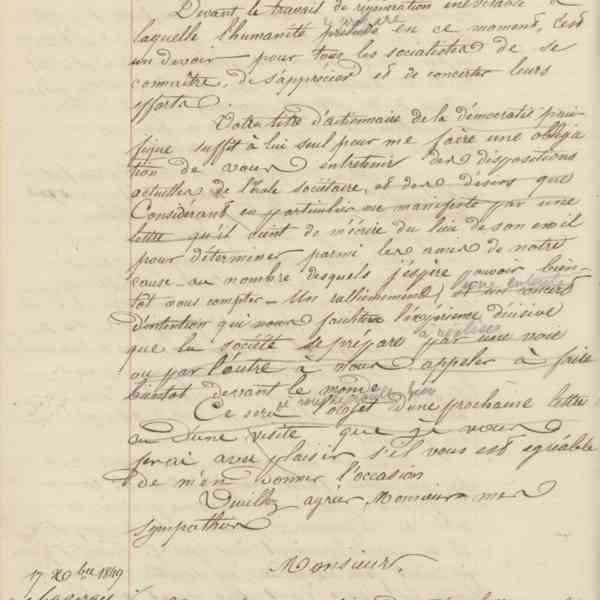 Devant le travail de rénovation inévitable à
laquelle l'humanité prélude en ce moment, c'est
un devoir pour tous les socialistes de se
connaître, de s'apprécier et de concerter leurs
efforts.
Votre titre d'actionnaire de la démocratie paci-
fique suffit à lui seul pour me faire une obliga
tion de vous entretenir des dispositions
actuelles de l'Ecole sociétaire, et des désirs que
Considérant en particulier me manifeste par une
lettre qu'il vient de m'écrire du lieu de son exil
pour déterminer parmi les amis de notre
cause - au nombre desquels j'espère pouvoir bien-
tôt vous compter - Un ralliement, et un concert
d'intention qui nous facilitera l'expérience décisive
que la société se prépare par une voie
à réaliser
ou par l'autre à nous appeler à faire
bientôt devant le monde
Ce sera l'objet d'une prochaine lettre
ou d'une visite que je vous
ferai avec plaisir s'il vous est agréable
de m'en donner l'occasion
Veuillez agréer, Monsieur mes
sympathies
Monsieur.
17 Xbre 1849